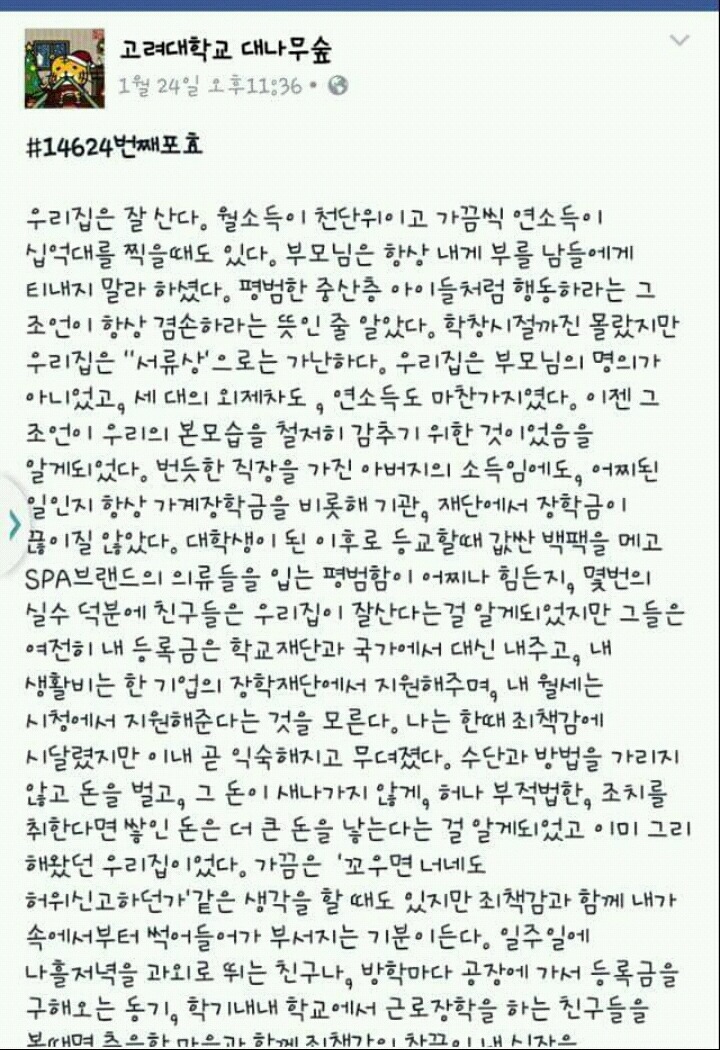 고려대학교 대나무숲
1월 24일 오후11:36 •
#14624번째포효
우리집은 잘 산다. 월소득이 천단위이고 가끔씩 연소득이
십억대를 찍을때도 있다. 부모님은 항상 내게 부를 남들에게
티내지 말라 하셨다. 평범한 중산층 아이들처럼 행동하라는 그
조언이 항상 겸손하라는 뜻인 줄 알았다. 학창시절까진 몰랐지만
우리집은 "서류상'으로는 가난하다. 우리집은 부모님의 명의가
아니었고, 세 대의 외제차도 , 연소득도 마찬가지였다. 이젠 그
조언이 우리의 본모습을 철저히 감추기 위한 것이었음을
알게되었다. 번듯한 직장을 가진 아버지의 소득임에도, 어찌된
일인지 항상 가계장학금을 비롯해 기관, 재단에서 장학금이
끊이질 않았다. 대학생이 된 이후로 등교할때 값싼 백팩을 메고
SPA브랜드의 의류들을 입는 평범함이 어찌나 힘든지, 몇번의
실수 덕분에 친구들은 우리집이 잘산다는걸 알게되었지만 그들은
여전히 내 등록금은 학교재단과 국가에서 대신 내주고, 내
생활비는 한 기업의 장학재단에서 지원해주며, 내 월세는
시청에서 지원해준다는 것을 모른다. 나는 한때 죄책감에
시달렸지만 이내 곧 익숙해지고 무뎌졌다. 수단과 방법을 가리지
않고 돈을 벌고, 그 돈이 새나가지 않게, 허나 부적법한, 조치를
취한다면 쌓인 돈은 더 큰 돈을 낳는다는 걸 알게되었고 이미 그리
해왔던 우리집이었다. 가끔은 '꼬우면 너네도
허위신고하던가'같은 생각을 할 때도 있지만 죄책감과 함께 내가
속에서부터 썩어들어가 부서지는 기분이든다. 일주일에
나흘저녁을 과외로 뛰는 친구나, 방학마다 공장에 가서 등록금을
구해오는 동기, 학기내내 학교에서 근로장학을 하는 친구들을